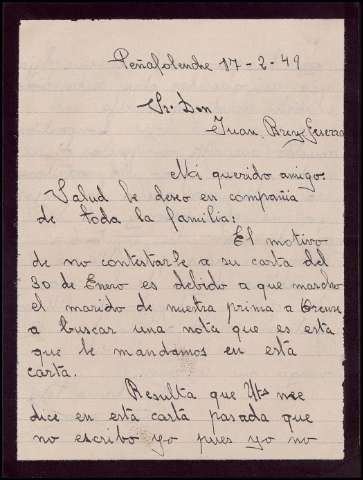 Peñafolenche 17-2-49
Sr. Don
Juan Brey Guerra
Mi querido amigo:
Salud le deseo en compañia
de toda la familia:
El motivo
de no contestarle a su carta del
30 de Enero es debido a que marcho
el marido de nuetra prima a Orense
a buscar una nota que es esta
que le mandamos en esta
carta.
Resulta que Uts me
dice en esta carta pasada que
no escribo yo pues yo no